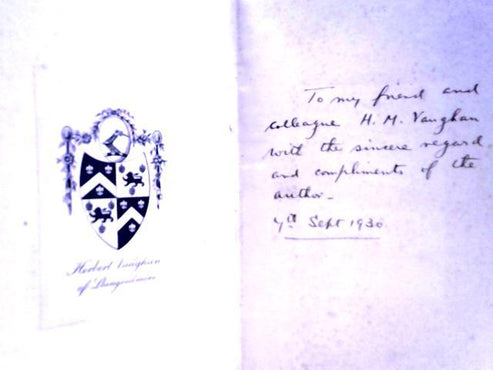 Herbert Vaughan
of Llangoedmore
To my friend and
colleague H. M. Vaughan
with the sincere regard
and compliments of the
author.
7th Sept 1930